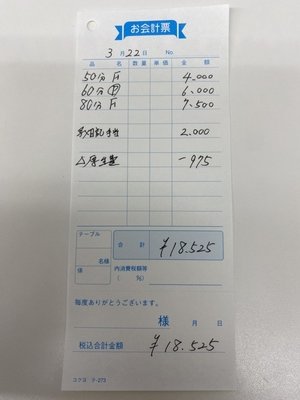 お会計票
3月22日 No.
品名 数量 単価 金額
50分 4.000
60分 6.000
80分 7.500
手当 2.000
△厚生費 -975
テーブル 名様 係
合計 ¥18.525
内消費税額等 ( %)
毎度ありがとうございます。
様 月 日
税込合計金額 ¥18.525
コクヨ テ-273